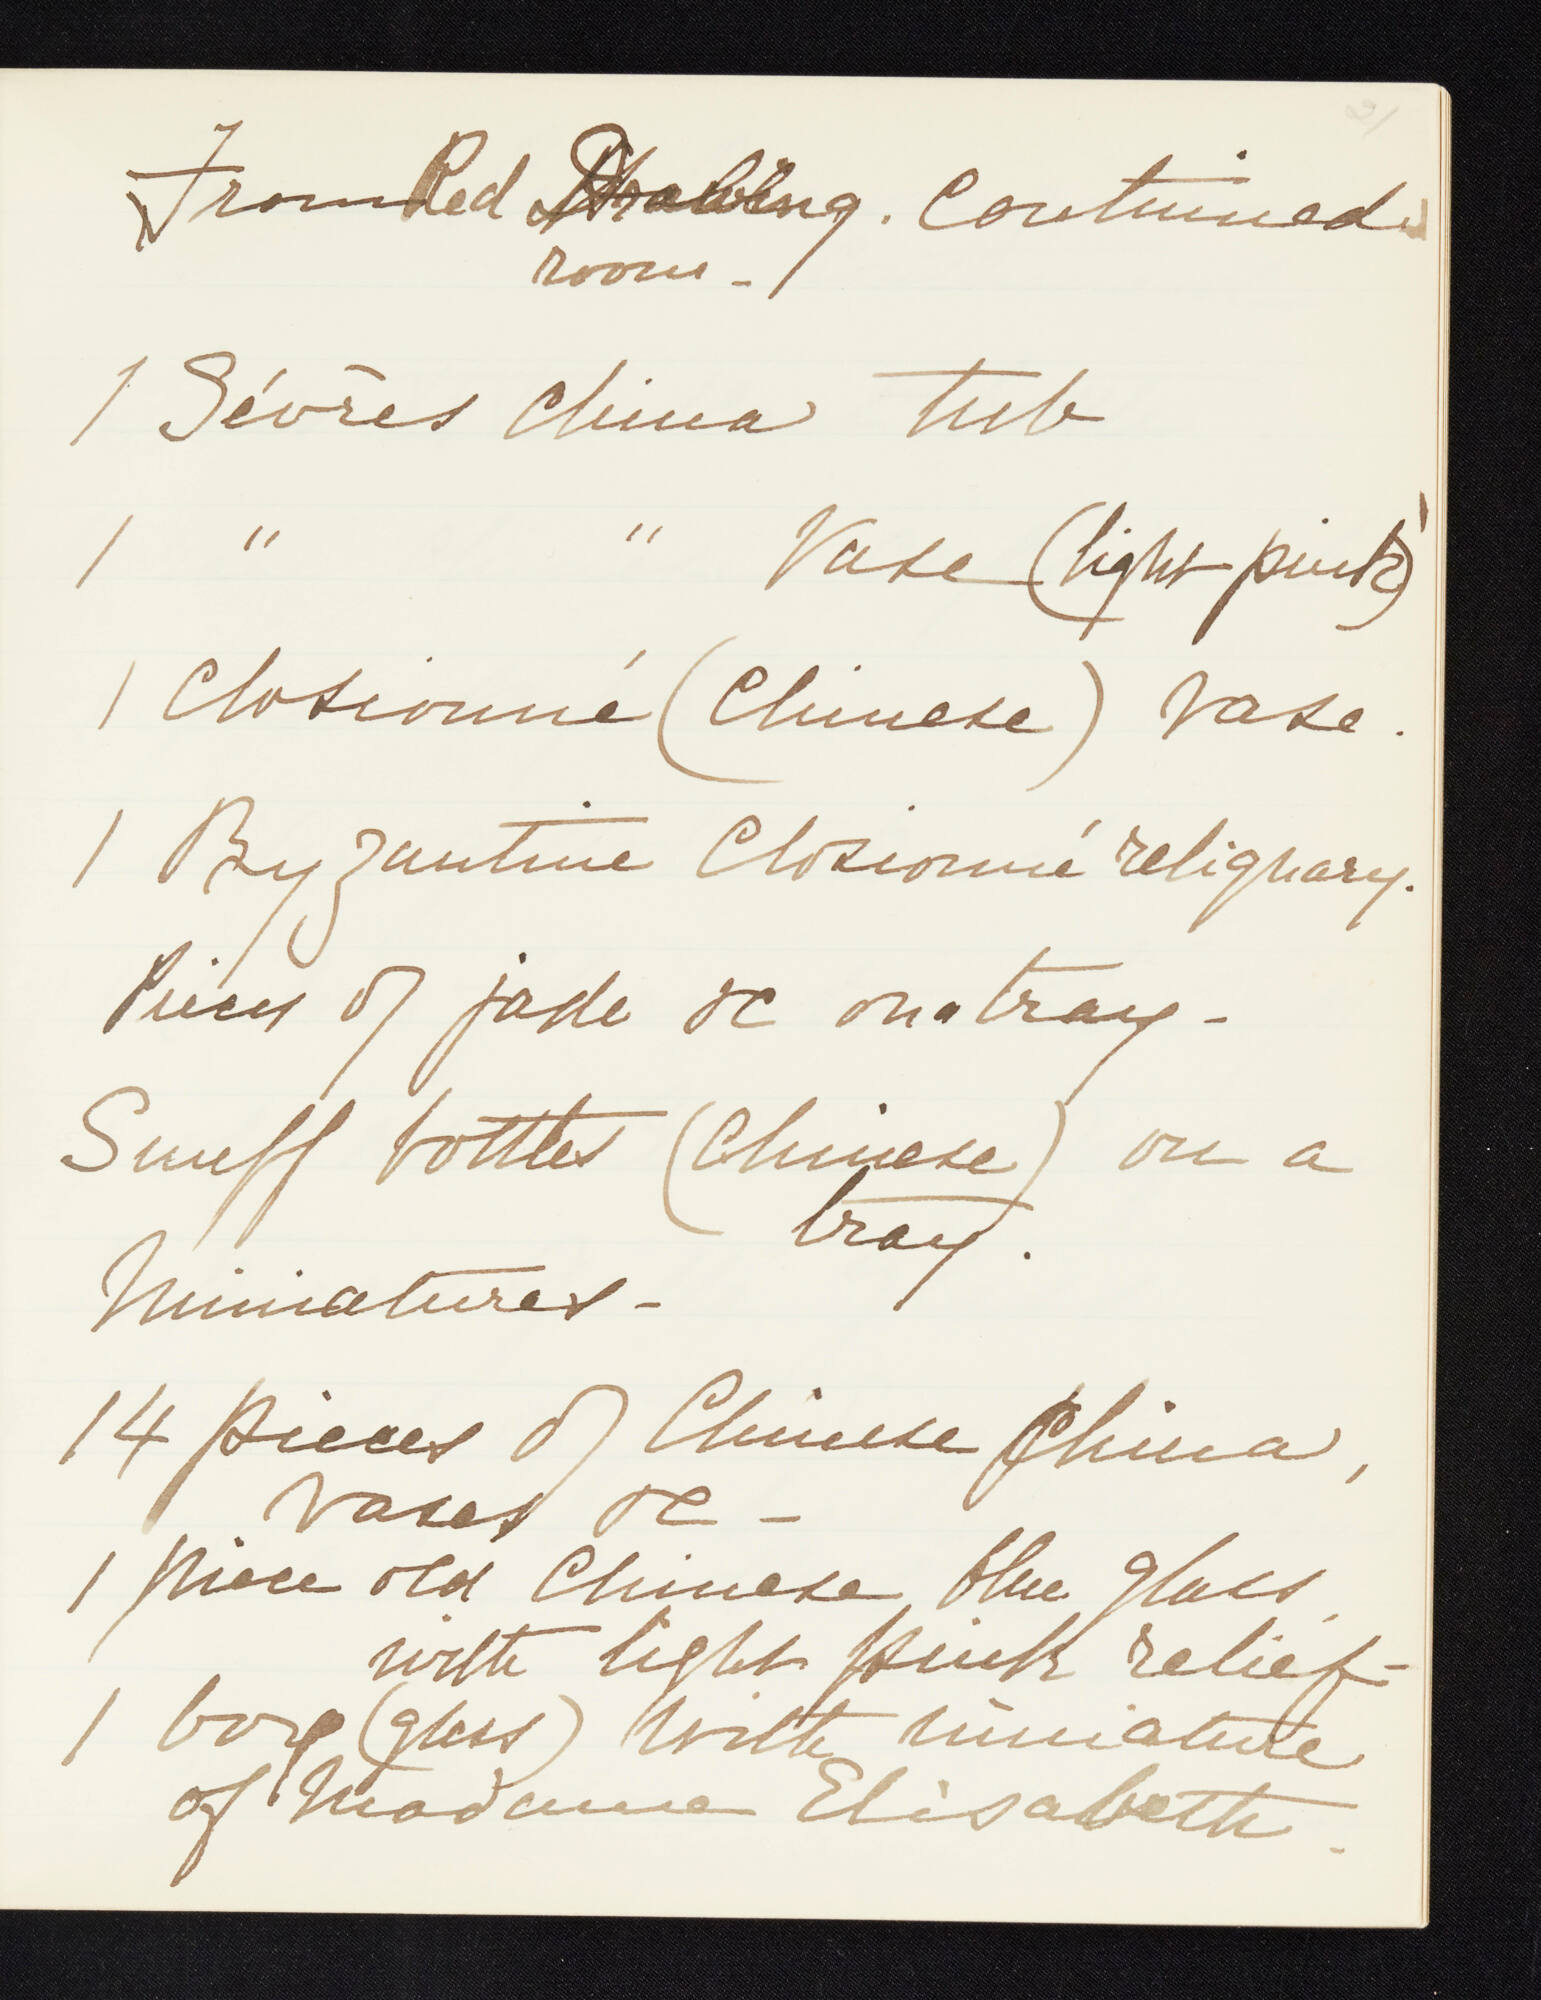 21
From Red Drawing. Continued.
room -
1 Sévres China tub
1 " " Vase (light pink)
1 Closionné (Chinese) vase.
1 Byzantine Closionné reliquary.
Pieces of jade &c on a tray -
Snuff bottles (Chinese) on a
tray.
Miniatures -
14 pieces of Chinese China,
vases &c -
1 piece old Chinese blue glass,
with light pink relief -
1 box (glass) with miniature
of Madame Elisabeth.